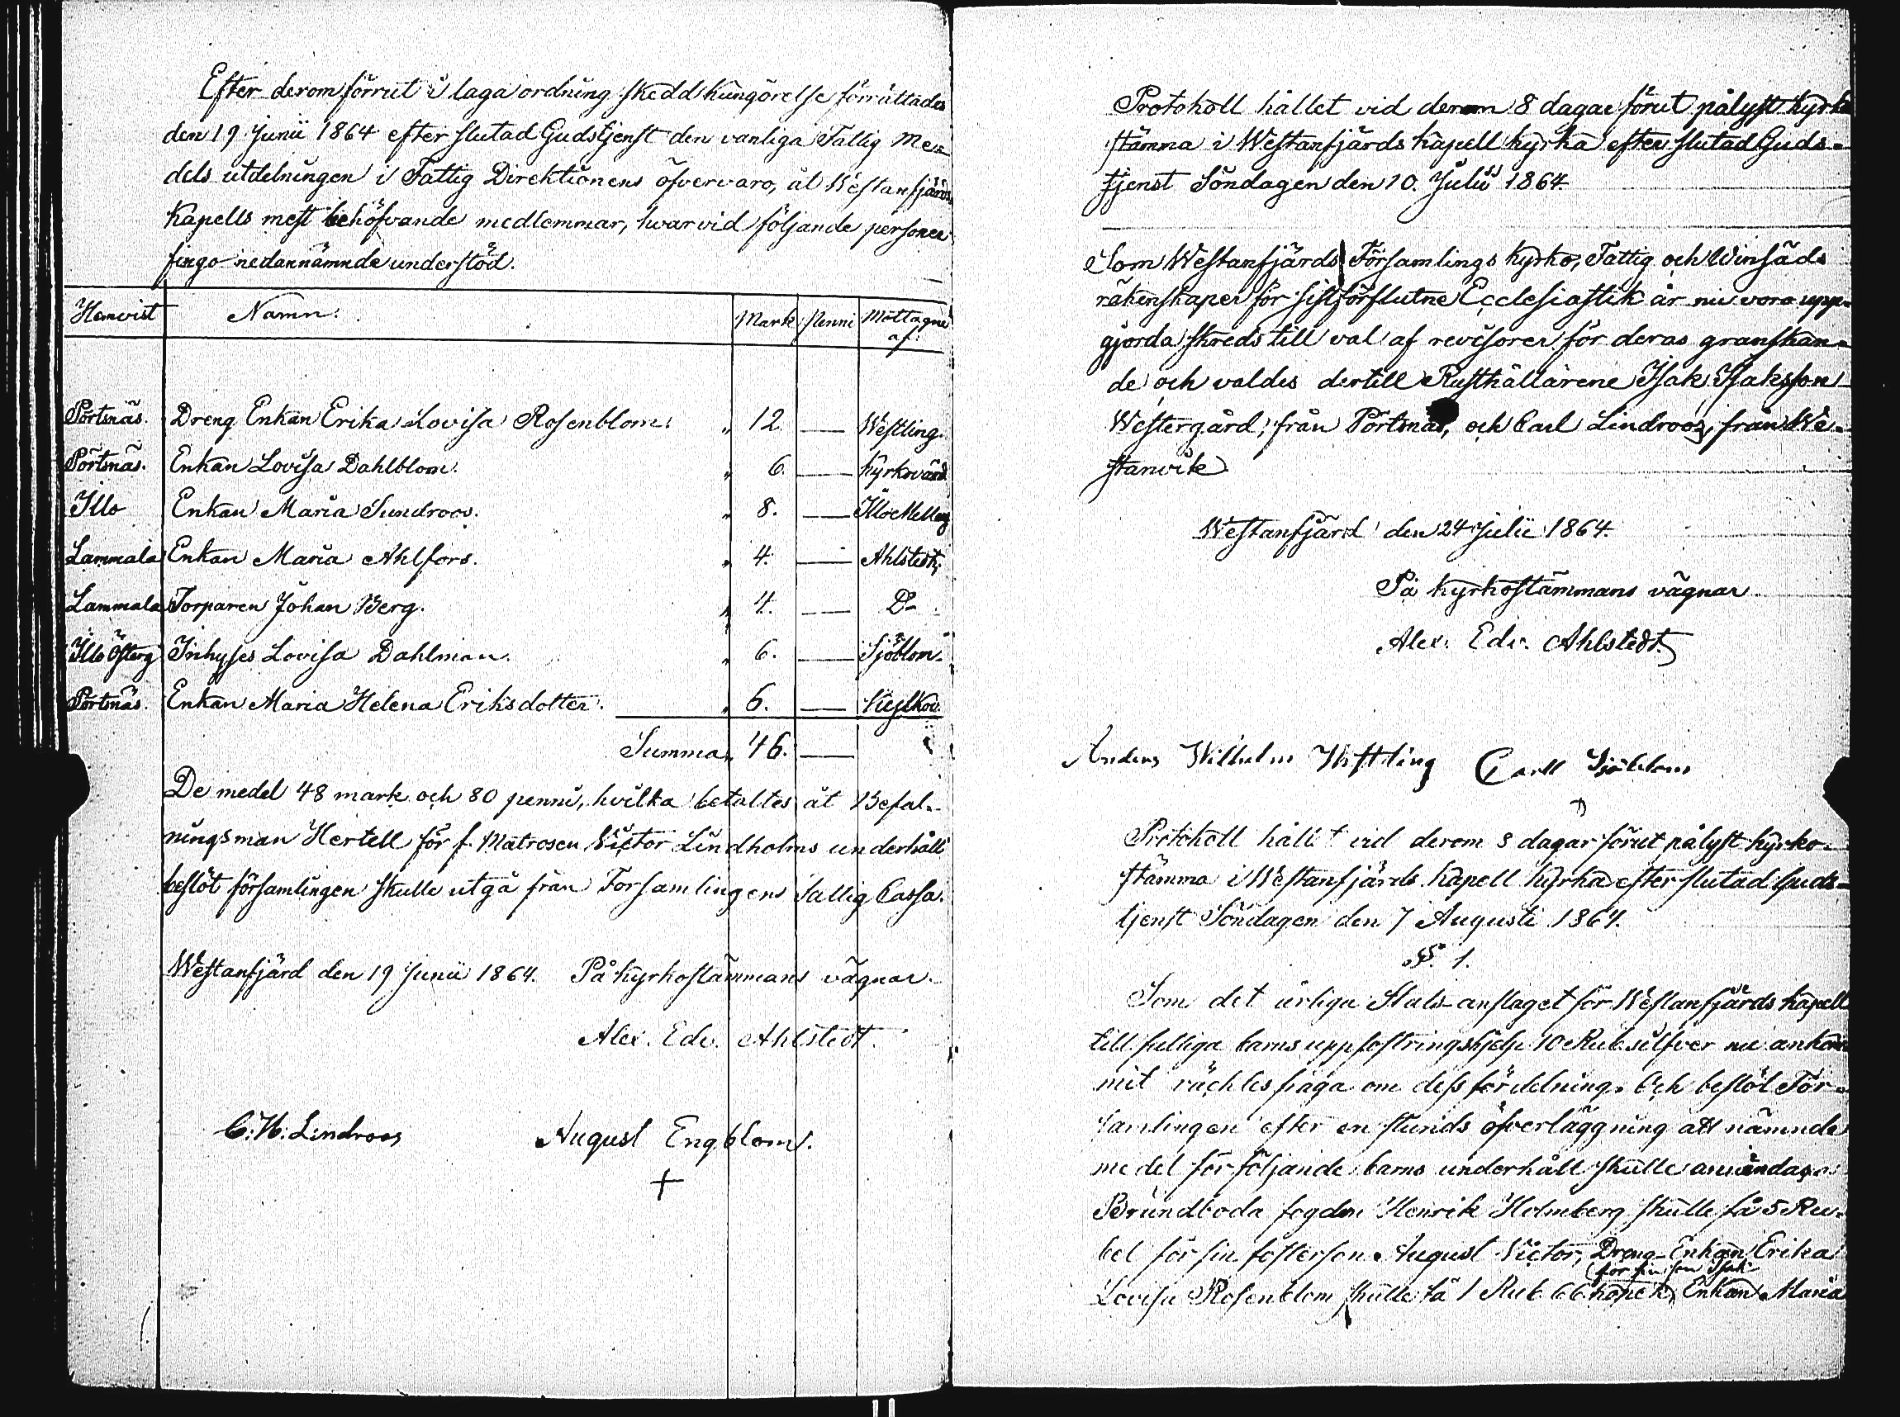 Efter derom förrut i laga ordning skedd kungörelse förrättades
den 19 Junii 1864 efter slutad Gudstjenst den vanliga Fattig Me-
dels utdelningen i Fattig Direktionens öfvervaro, åt Westanfjärds
Kapells mest behöfvande medlemmar, hvarvid följande personer
fingo nedannämnde understöd.
Hemvist Namn. Mark Penni Mottagne af:
Pörtsnäs. Dreng Enkan Erika Lovisa Rosenblom. „ 12. — Westling.
Pörtsnäs. Enkan Lovisa Dahlblom. „ 6. — Kyrkovärd
Illo Enkan Maria Sundroos. „ 8. —
Lammala Enkan Maria Ahlfors. „ 4. — Ahlstedt,
Lammala Torparen Johan Berg. „ 4. — D°
Illo Österg Inhyses Lovisa Dahlman. „ 6. — Sjöblom.
Pörtsnäs. Enkan Maria Helena Eriksdotter. „ 6. —
Summa „ 46. —
De medel 48 mark och 80 penni, hvilka betaltes åt Befal-
ningsman Hertell för f. Matrosen Victor Lindholms underhåll
beslöt församlingen skulle utgå från Församlingens Fattig Cassa.
Westanfjärd den 19 Junii 1864. På Kyrkostämmans vägnar.
Alex. Edv. Ahlstedt.
C. H. Lindroos August Engblom.
Protokoll hållet vid derom 8 dagar förut pålyst Kyrko
stämma i Westanfjärds Kapell kyrka efter slutad Guds-
tjenst Söndagen den 10. Julii 1864
Som Westanfjärds Församlings Kyrko, Fattig och Winsäds
räkenskaper för sistförflutne Ecclesiastik år nu voro upp-
gjorda skreds till val af revisorer för deras granskan-
de och valdes dertill Rusthållarene Isak Isaksson
Westergård, från Pörtsnäs, och Carl Lindroos, från We-
stanvik
Westanfjärd den 24 Julii 1864.
På Kyrkostämmans vägnar
Alex. Edv. Ahlstedt.
Anders Wilhelm Westling Carll Sjöblom
Protokoll hållit vid derom 8 dagar förut pålyst kyrko-
stämma i Westanfjärds Kapell kyrka efter slutad Guds-
tjenst Söndagen den 7 Augusti 1864.
§. 1.
Som det årliga Stats-anslaget för Westanfjärds Kapell
till fattiga barns uppfostringshjelp 10 Rub. silfver nu ankom-
mit väcktes fråga om dess fördelning. Och beslöt För-
samlingen efter en stunds öfverläggning att nämnde
medel för följande barns underhåll skulle användas:
Brundboda fogden Henrik Holmberg skulle få 5 Ru-
bel för sin fosterson August Victor, Dreng-Enkan Erika
(för sin son Isak
Lovisa Rosenblom skulle få 1 Rub 66 kopek) Enkan Maria